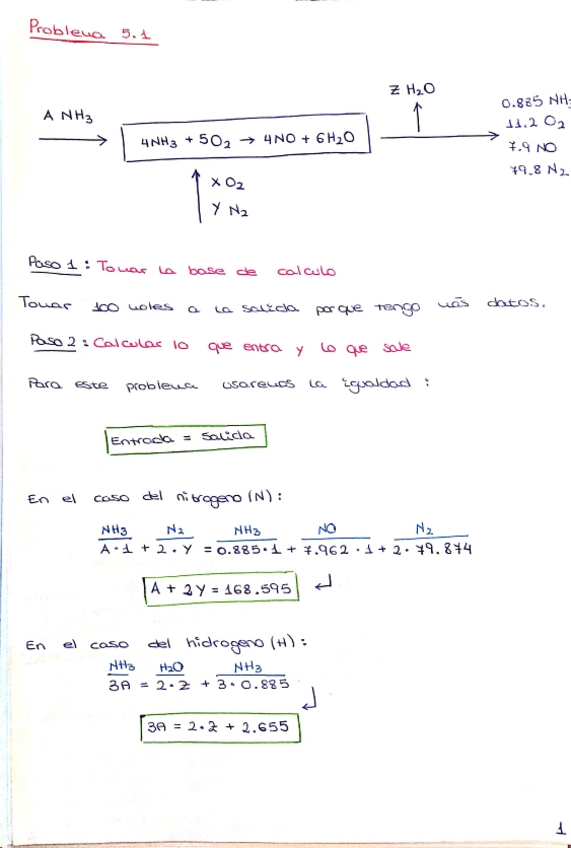 Problema 5.1
Z H₂O
A NH₃
0.885 NH₃
11.2 O₂
4NH₃ + 5O₂ → 4NO + 6H₂O
7.9 NO
79.8 N₂
X O₂
Y N₂
Paso 1 : Tomar la base de calculo
Tomar 100 moles a la salida porque tengo más datos.
Paso 2 : Calcular lo que entra y lo que sale
Para este problema usaremos la igualdad :
Entrada = Salida
En el caso del nitrogeno (N) :
NH₃ N₂ NH₃ NO N₂
A · 1 + 2 · Y = 0.885 · 1 + 7.962 · 1 + 2 · 79.874
A + 2Y = 168.595
En el caso del hidrogeno (H) :
NH₃ H₂O NH₃
3A = 2 · Z + 3 · 0.885
3A = 2 · Z + 2.655
1